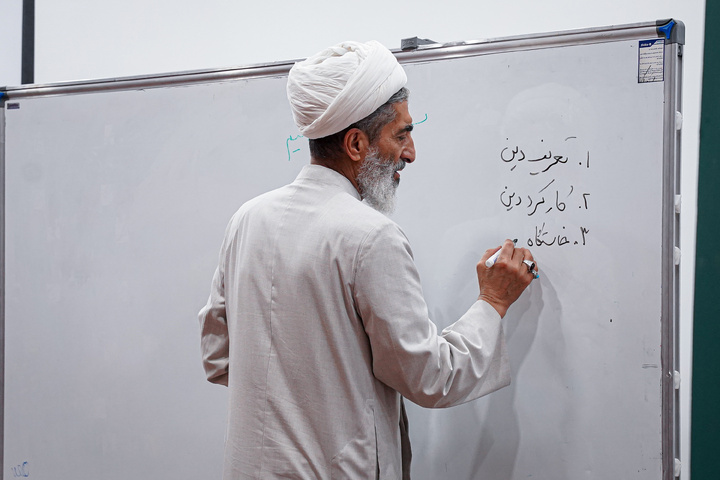 ۱. تعریف دین
۲. کارکرد دین
۳. خاستگاه